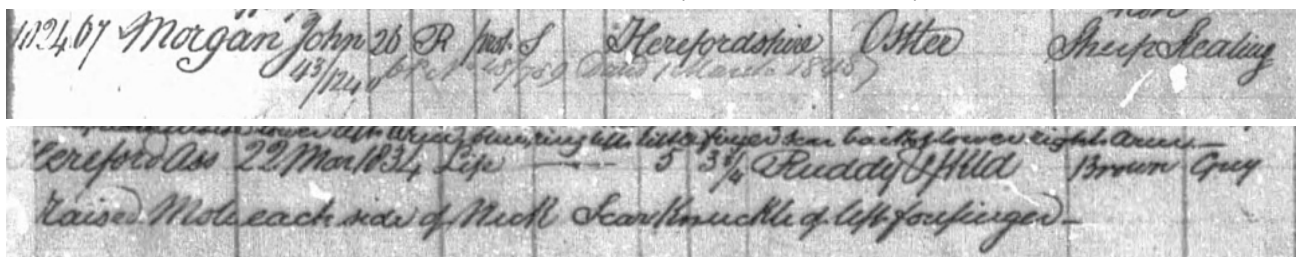 67 Morgan John 26 R Prot. S Herefordshire Ostler Sheep Stealing
43/1240 48/789 Dead 1 March 1848
lower left finger scar back of lower right arm
Hereford Ass 22 Mar 1834 Life — 5 3 3/4 Ruddy & ffd Brown Grey
Raised Mole each side of Neck Scar Knuckle of left forefinger